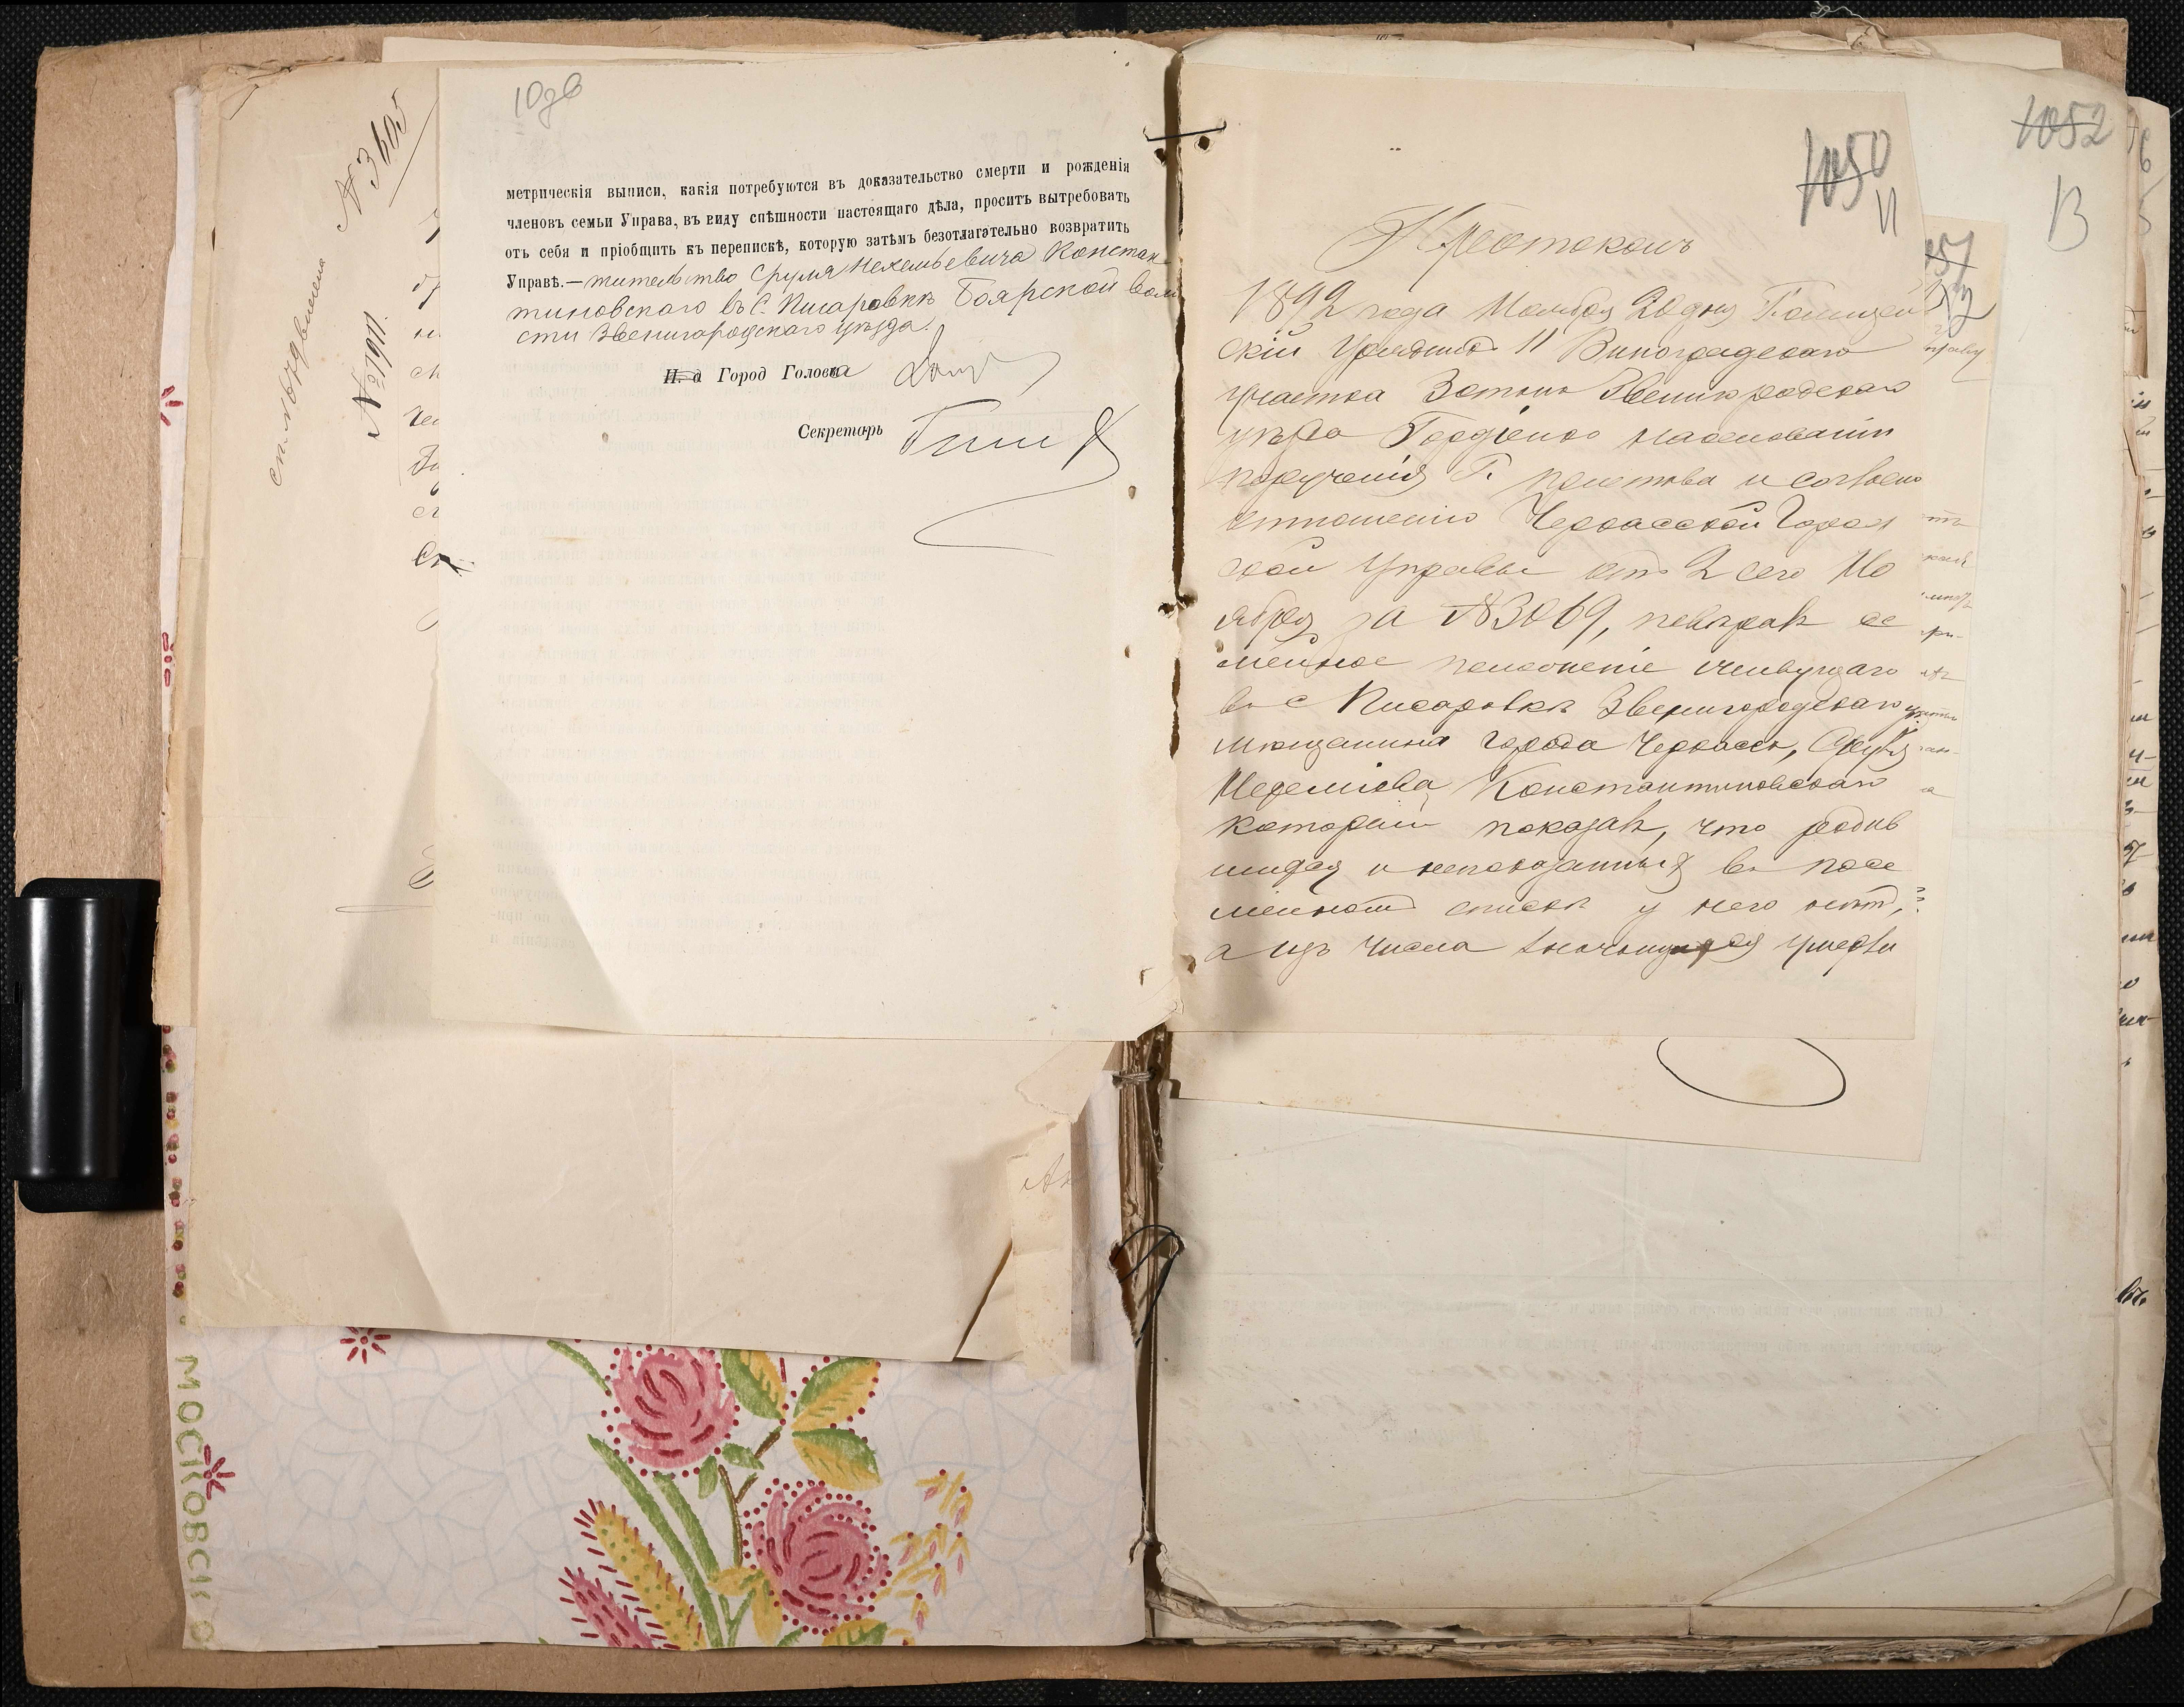 10 об
метрическія выписи, какія потребуются въ доказательство смерти и рожденія
членовъ семьи Управа, въ виду спѣшности настоящаго дѣла, проситъ вытребовать
отъ себя и пріобщить къ перепискѣ, которую затѣмъ безотлагательно возвратить
Управѣ.—жительство Сруля Нехемьевича Констан
тиновскаго въ с. Писаровкѣ Боярской воло
сти Звенигородскаго уѣзда.
И. д Город Голова
Секретарь
№ 3605
№ 1911.
1050
11
Протоколъ
1892 года Ноября 20 дня Полицей
скій Урядникъ 11 Виноградскаго
участка 3 стана Звенигородскаго
уѣзда Гордіенко на основаніи
порученія Г. Пристава и согласно
отношенію Черкасской Город
ской Управы отъ 2 сего Но
ября за № 3069, повѣрялъ се
мейное положеніе живущаго
въ с Писаровкѣ Звенигородскаго уѣзда
мѣщанина города Черкассъ, Сруля
Нехеміева Константиновскаго
который показалъ, что родив
шихся и непоказанныхъ въ посе
мейномъ спискѣ у него нѣтъ,
а изъ числа значущихся умерли
1052
13
МОСКОВСК